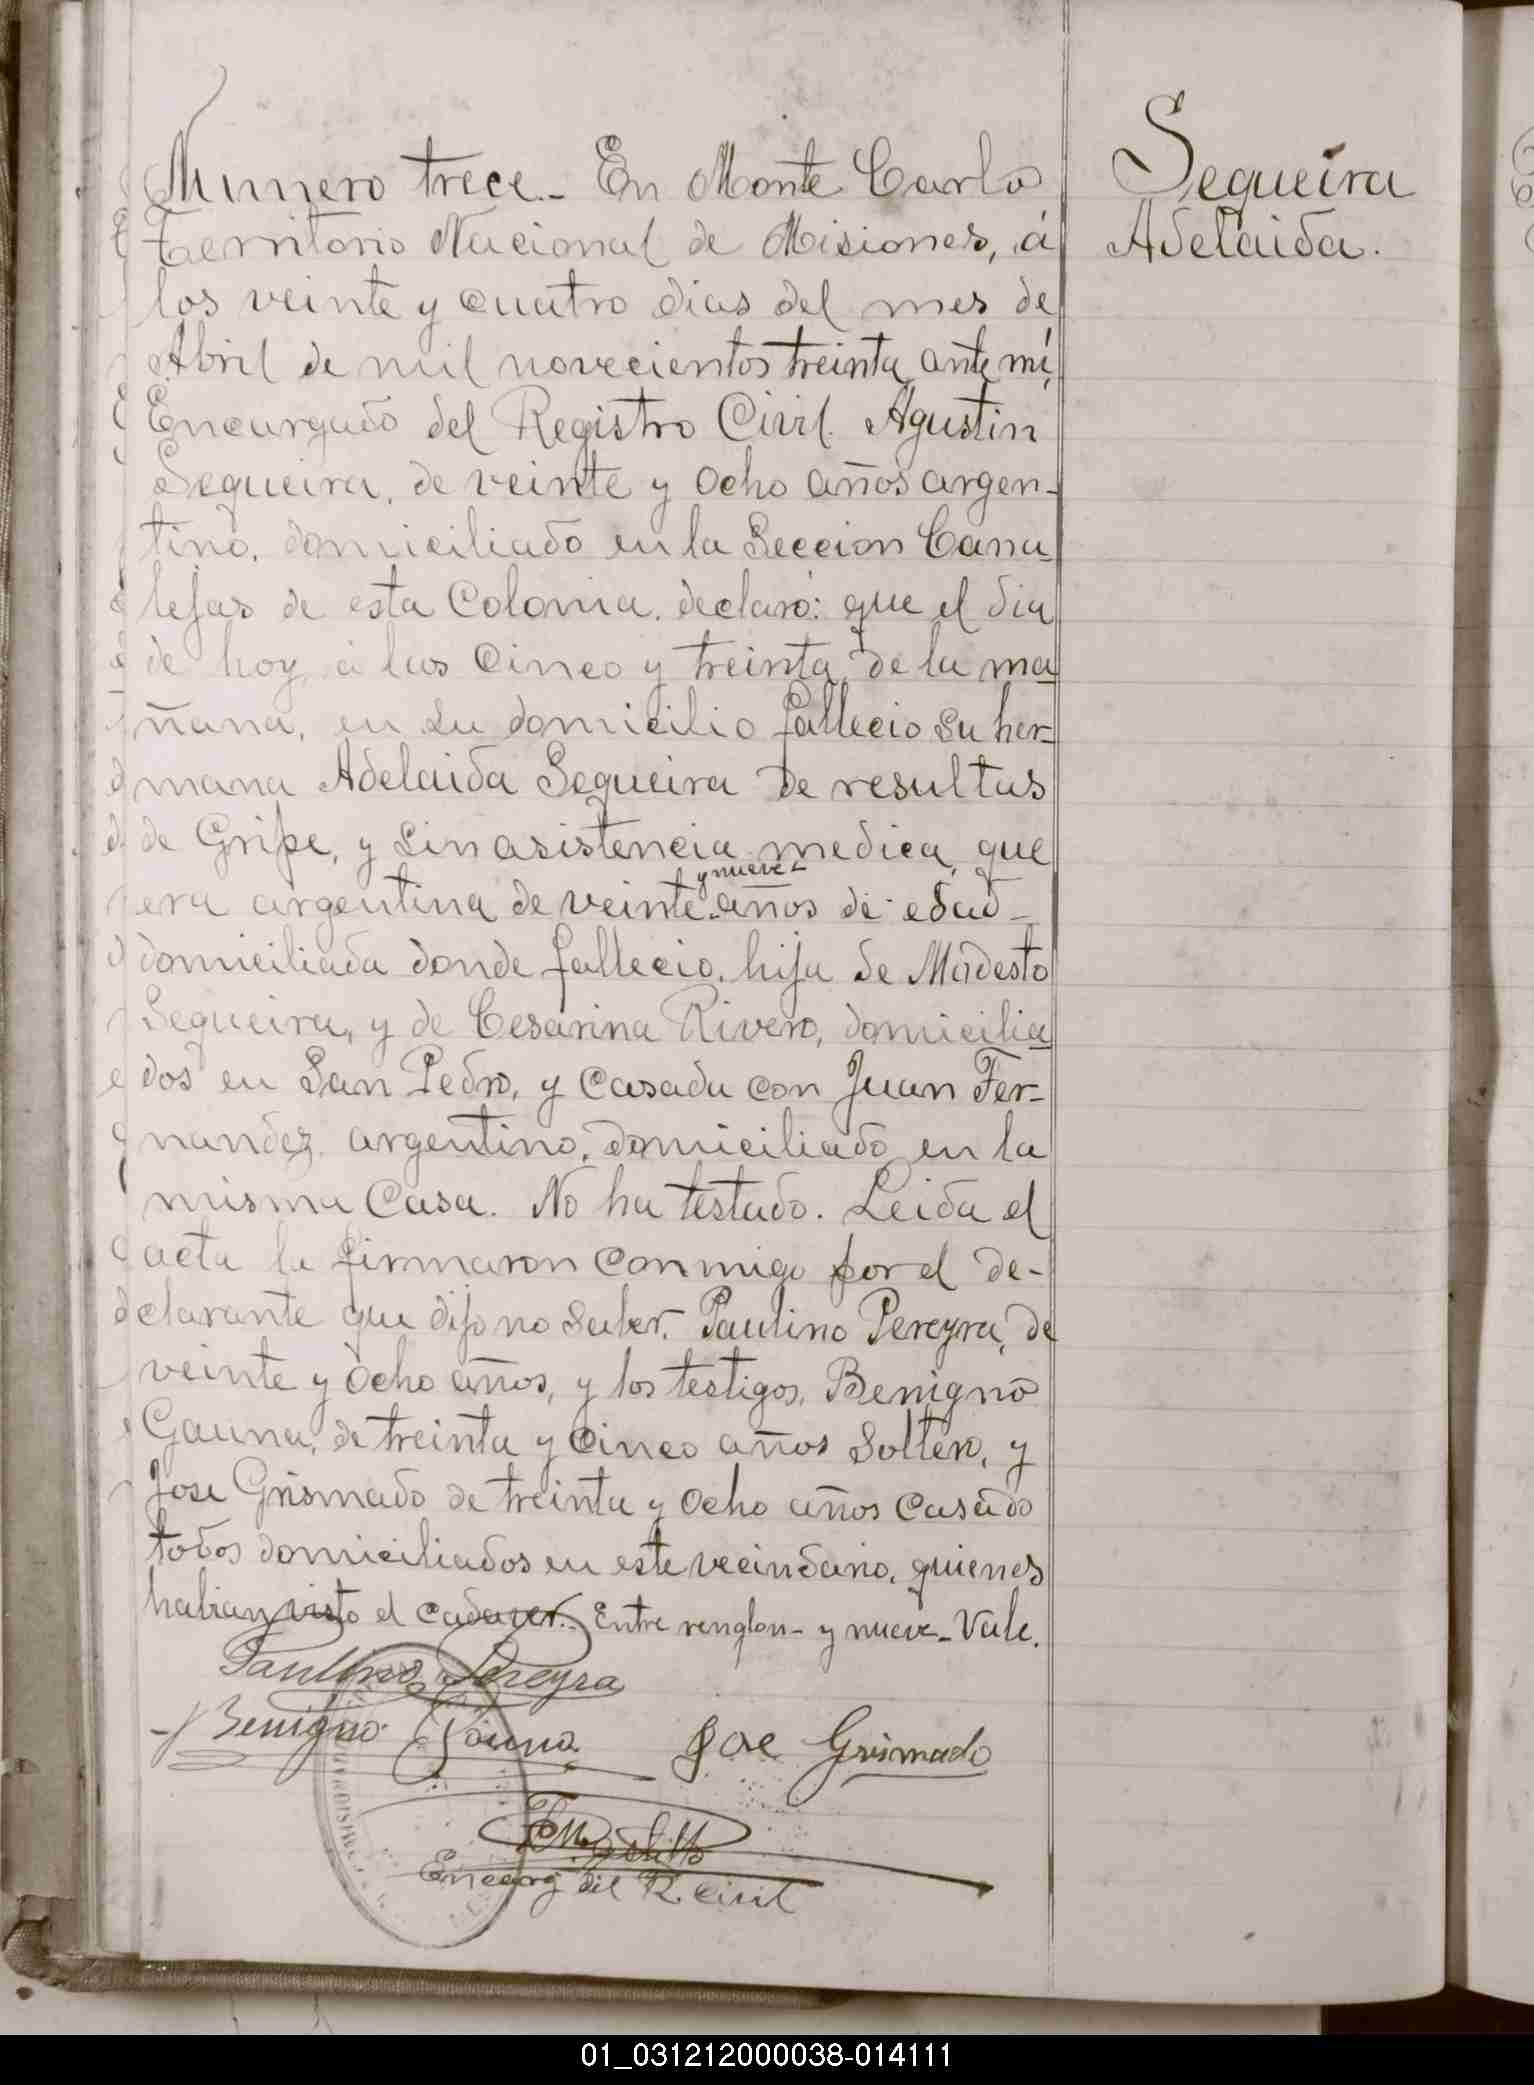 Numero trece.- En Monte Carlo
Territorio Nacional de Misiones, á
los veinte y cuatro dias del mes de
Abril de mil novecientos treinta, ante mí,
Encargado del Registro Civil. Agustin
Sequeira, de veinte y ocho años argen-
tino, domiciliado en la Seccion Cana-
lejas de esta Colonia, declaró: que el dia
de hoy, á las cinco y treinta, de la ma
ñana, en su domicilio fallecio su her-
mana Adelaida Sequeira de resultas
de Gripe, y sin asistencia medica, que
y nueve-
era argentina de veinte años de edad-
domiciliada donde fallecio, hija de Modesto
Sequeira, y de Cesarina Rivero, domicilia
dos en San Pedro, y casada con Juan Fer-
nandez, argentino, domiciliado en la
misma casa. No ha testado. Leida el
acta la firmaron conmigo por el de-
clarante que dijo no saber, Paulino Pereyra, de
veinte y ocho años, y los testigos, Benigno
Gauna, de treinta y cinco años soltero, y
Jose Grismado de treinta y ocho años casado
todos domiciliados en este vecindario, quienes
habian visto el cadaver.- Entre renglon- y nueve- Vale.
Paulino Pereyra
Benigno Gauna Jose Grismado
Encarg del R. Civil
Sequeira
Adelaida.
01_031212000038-014111